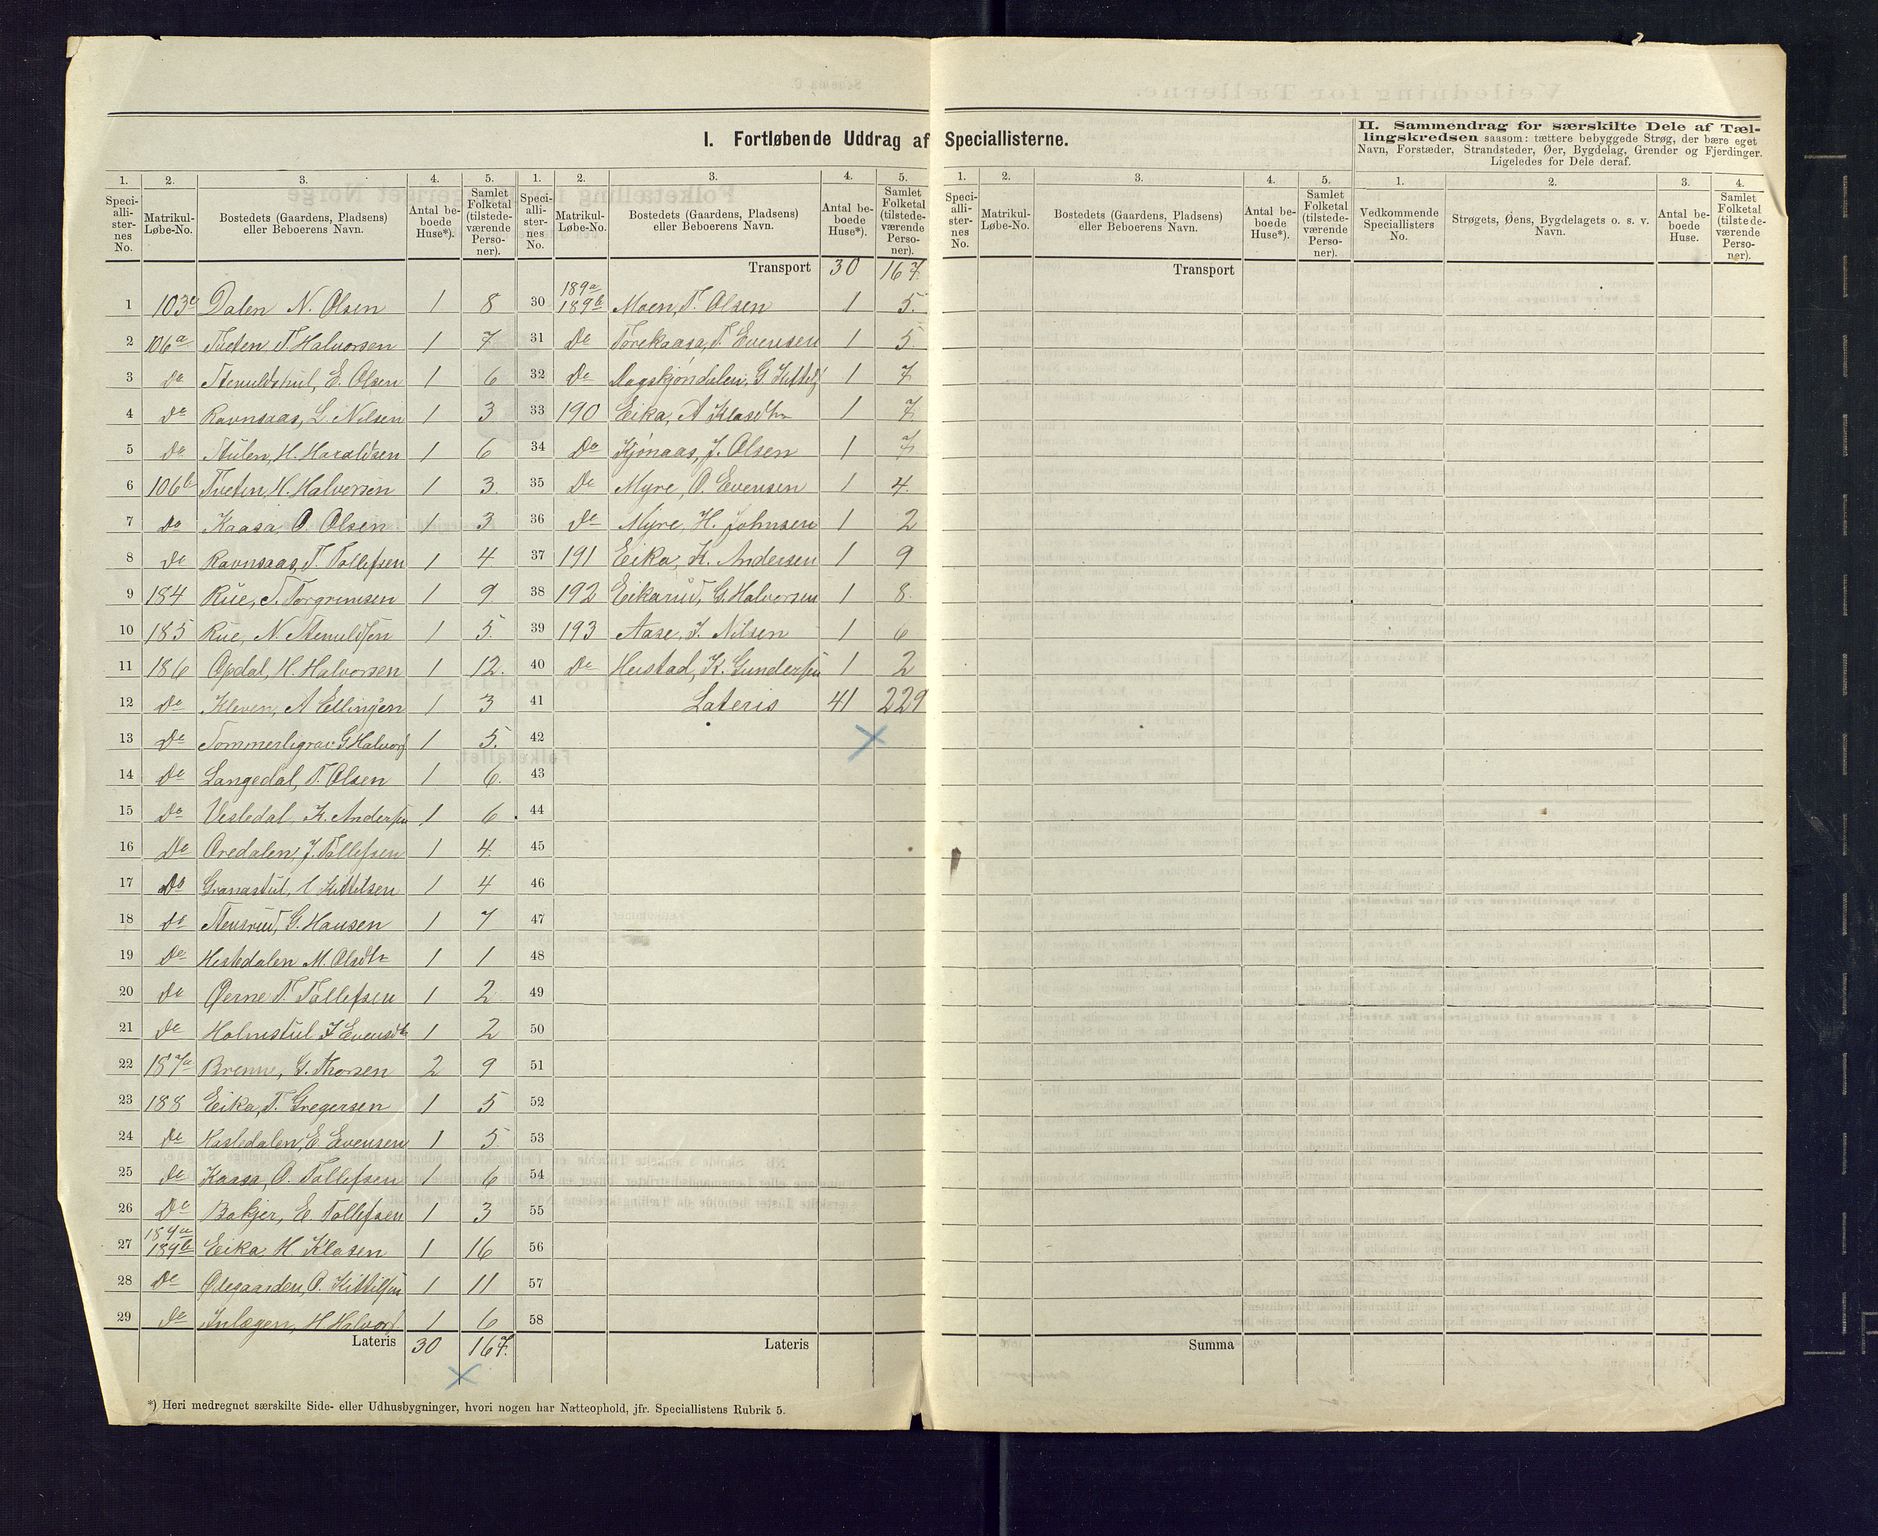 I. Fortløbende Uddrag af Speciallisterne.
II. Sammendrag for særskilte Dele af Tællingskredsen saasom: tættere bebyggede Strøg, der bære eget Navn, Forstæder, Strandsteder, Øer, Bygdelag, Grender og Fjerdinger. Ligeledes for Dele deraf.
1. 2. 3. 4. 5. 1. 2. 3. 4. 5. 1. 2. 3. 4. 5. 1. 2. 3. 4.
Speciallisternes No. Matrikul-Løbe-No. Bostedets (Gaardens, Pladsens) eller Beboerens Navn. Antal beboede Huse*). Samlet Folketal (tilstedeværende Personer).
Speciallisternes No. Matrikul-Løbe-No. Bostedets (Gaardens, Pladsens) eller Beboerens Navn. Antal beboede Huse*). Samlet Folketal (tilstedeværende Personer).
Speciallisternes No. Matrikul-Løbe-No. Bostedets (Gaardens, Pladsens) eller Beboerens Navn. Antal beboede Huse*). Samlet Folketal (tilstedeværende Personer).
Vedkommende Speciallisters No. Strøgets, Øens, Bygdelagets o. s. v. Navn. Antal beboede Huse. Samlet Folketal (tilstedeværende Personer).
1 103a Dalen N. Olsen 1 8
2 106a Tveten T Halvorsen 1 7
3 do E. Olsen 1 6
4 do Ravnsaas, L. Nilsen 1 3
5 do Stulen, H. Haraldsen 1 6
6 106b Tveten, H. Halvorsen 1 3.
7 do Kaasa O. Olsen 1 3
8 do Ravnsaas, T. Tollefsen 1 4
9 184 Rue, T. Torgrimsen 1 9
10 185 Rue, N. Stenuldsen 1 5.
11 186 Opdal, H. Halvorsen 1 12.
12 Do Kleven, A Ellingsen 1 3
13 Do Tommerligrav G Halvors 1 5.
14 Do Langedal, T. Olsen 1 6.
15 Do Vesledal, K. Andersen 1 6
16 Do Oredalen, J. Tollefsen 1 4.
17 Do Granastul, Kittilsen 1 4
18 do Stensrud, G. Hansen 1 7
19 Do Hestedalen M. Olsdtr 1 1
20 do Øerne T. Tollefsen 1 2
21 do Holmstul Evensdtr 1 2
22 187a Brenne, G. Thorsen 2 9
23 188 Eika, T. Gregersen 1 5
24 do Hasledalen, E. Evensen 1 5
25 do Kaasa, O. Tollefsen 1 6
26 Do Bakjer, E Tollefsen 1 3
27 189a 189b Eika H Klasen 1 16
28 Do Ødegaarden, O. Kittilsen 1 11
29 Do Inlægen, H Halvors 1 6
Lateris 30 167.
Transport 30 167.
30 189a 189b Moen, T. Olsen 1 5.
31 Do Torekaasa, T. Evensen 1 5
32 Do Dagskjøndalen, G Kittils 1 7
33 190 Eika, A Klasdtr 1 7
34 Do Kjønaas, J. Olsen 1 7
35 Do Myre, O. Evensen 1 4.
36 do Myre, H. Johnsen 1 2
37 191 Eika, K. Andersen 1 9
38 192 Eikarud, G. Halvorsen 1 8.
39 193 Aase, Nilsen 1 6
40 Do Heistad, K. Gundersen 1 2
41 Lateris 41 229
42
43
44
45
46
47
48
49
50
51
52
53
54
55
56
57
58
Lateris
Transport
Summa
*) Heri medregnet særskilte Side- eller Udhusbygninger, hvori nogen har Natteophold, jfr. Speciallistens Rubrik 5.